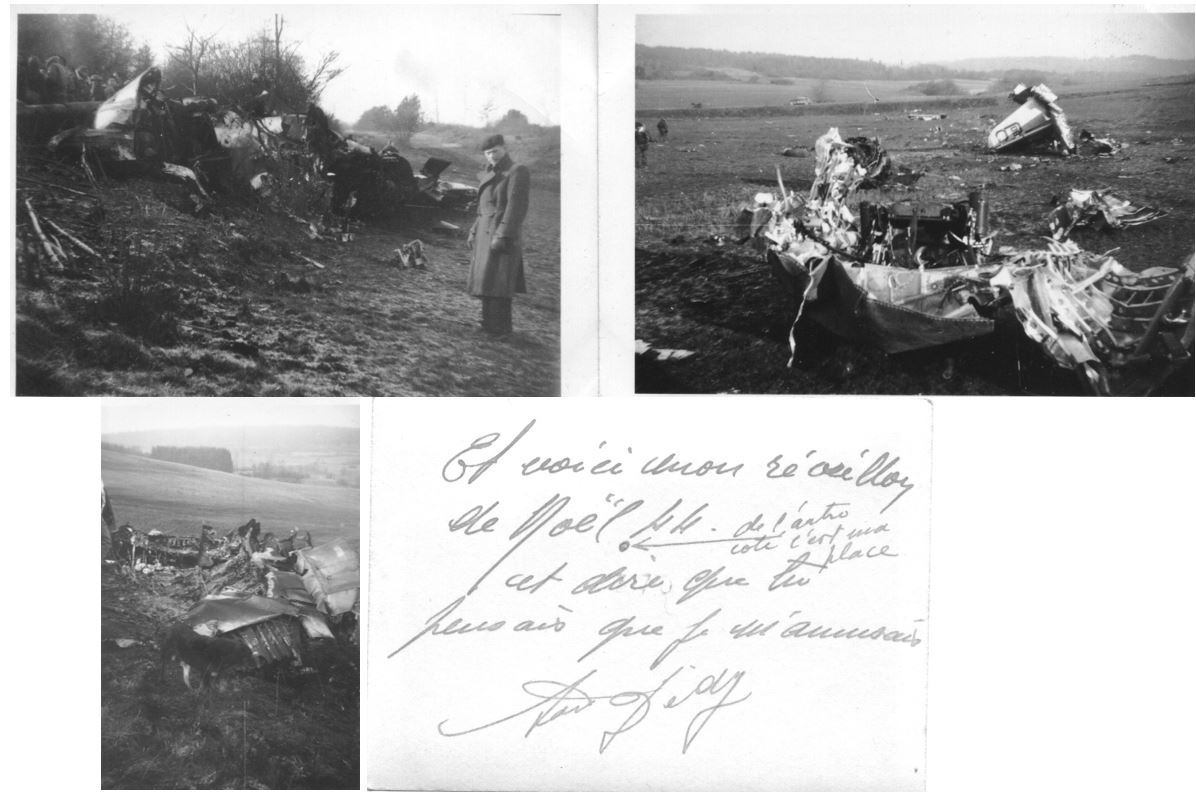 Et voici mon réveillon
de Noël 44. de l'autre
coté c'est ma
place
et dire que tu
pensais que je m'amusais